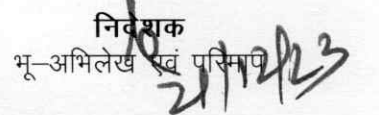 निदेशक
भू–अभिलेख एवं परिमाप
21/12/23